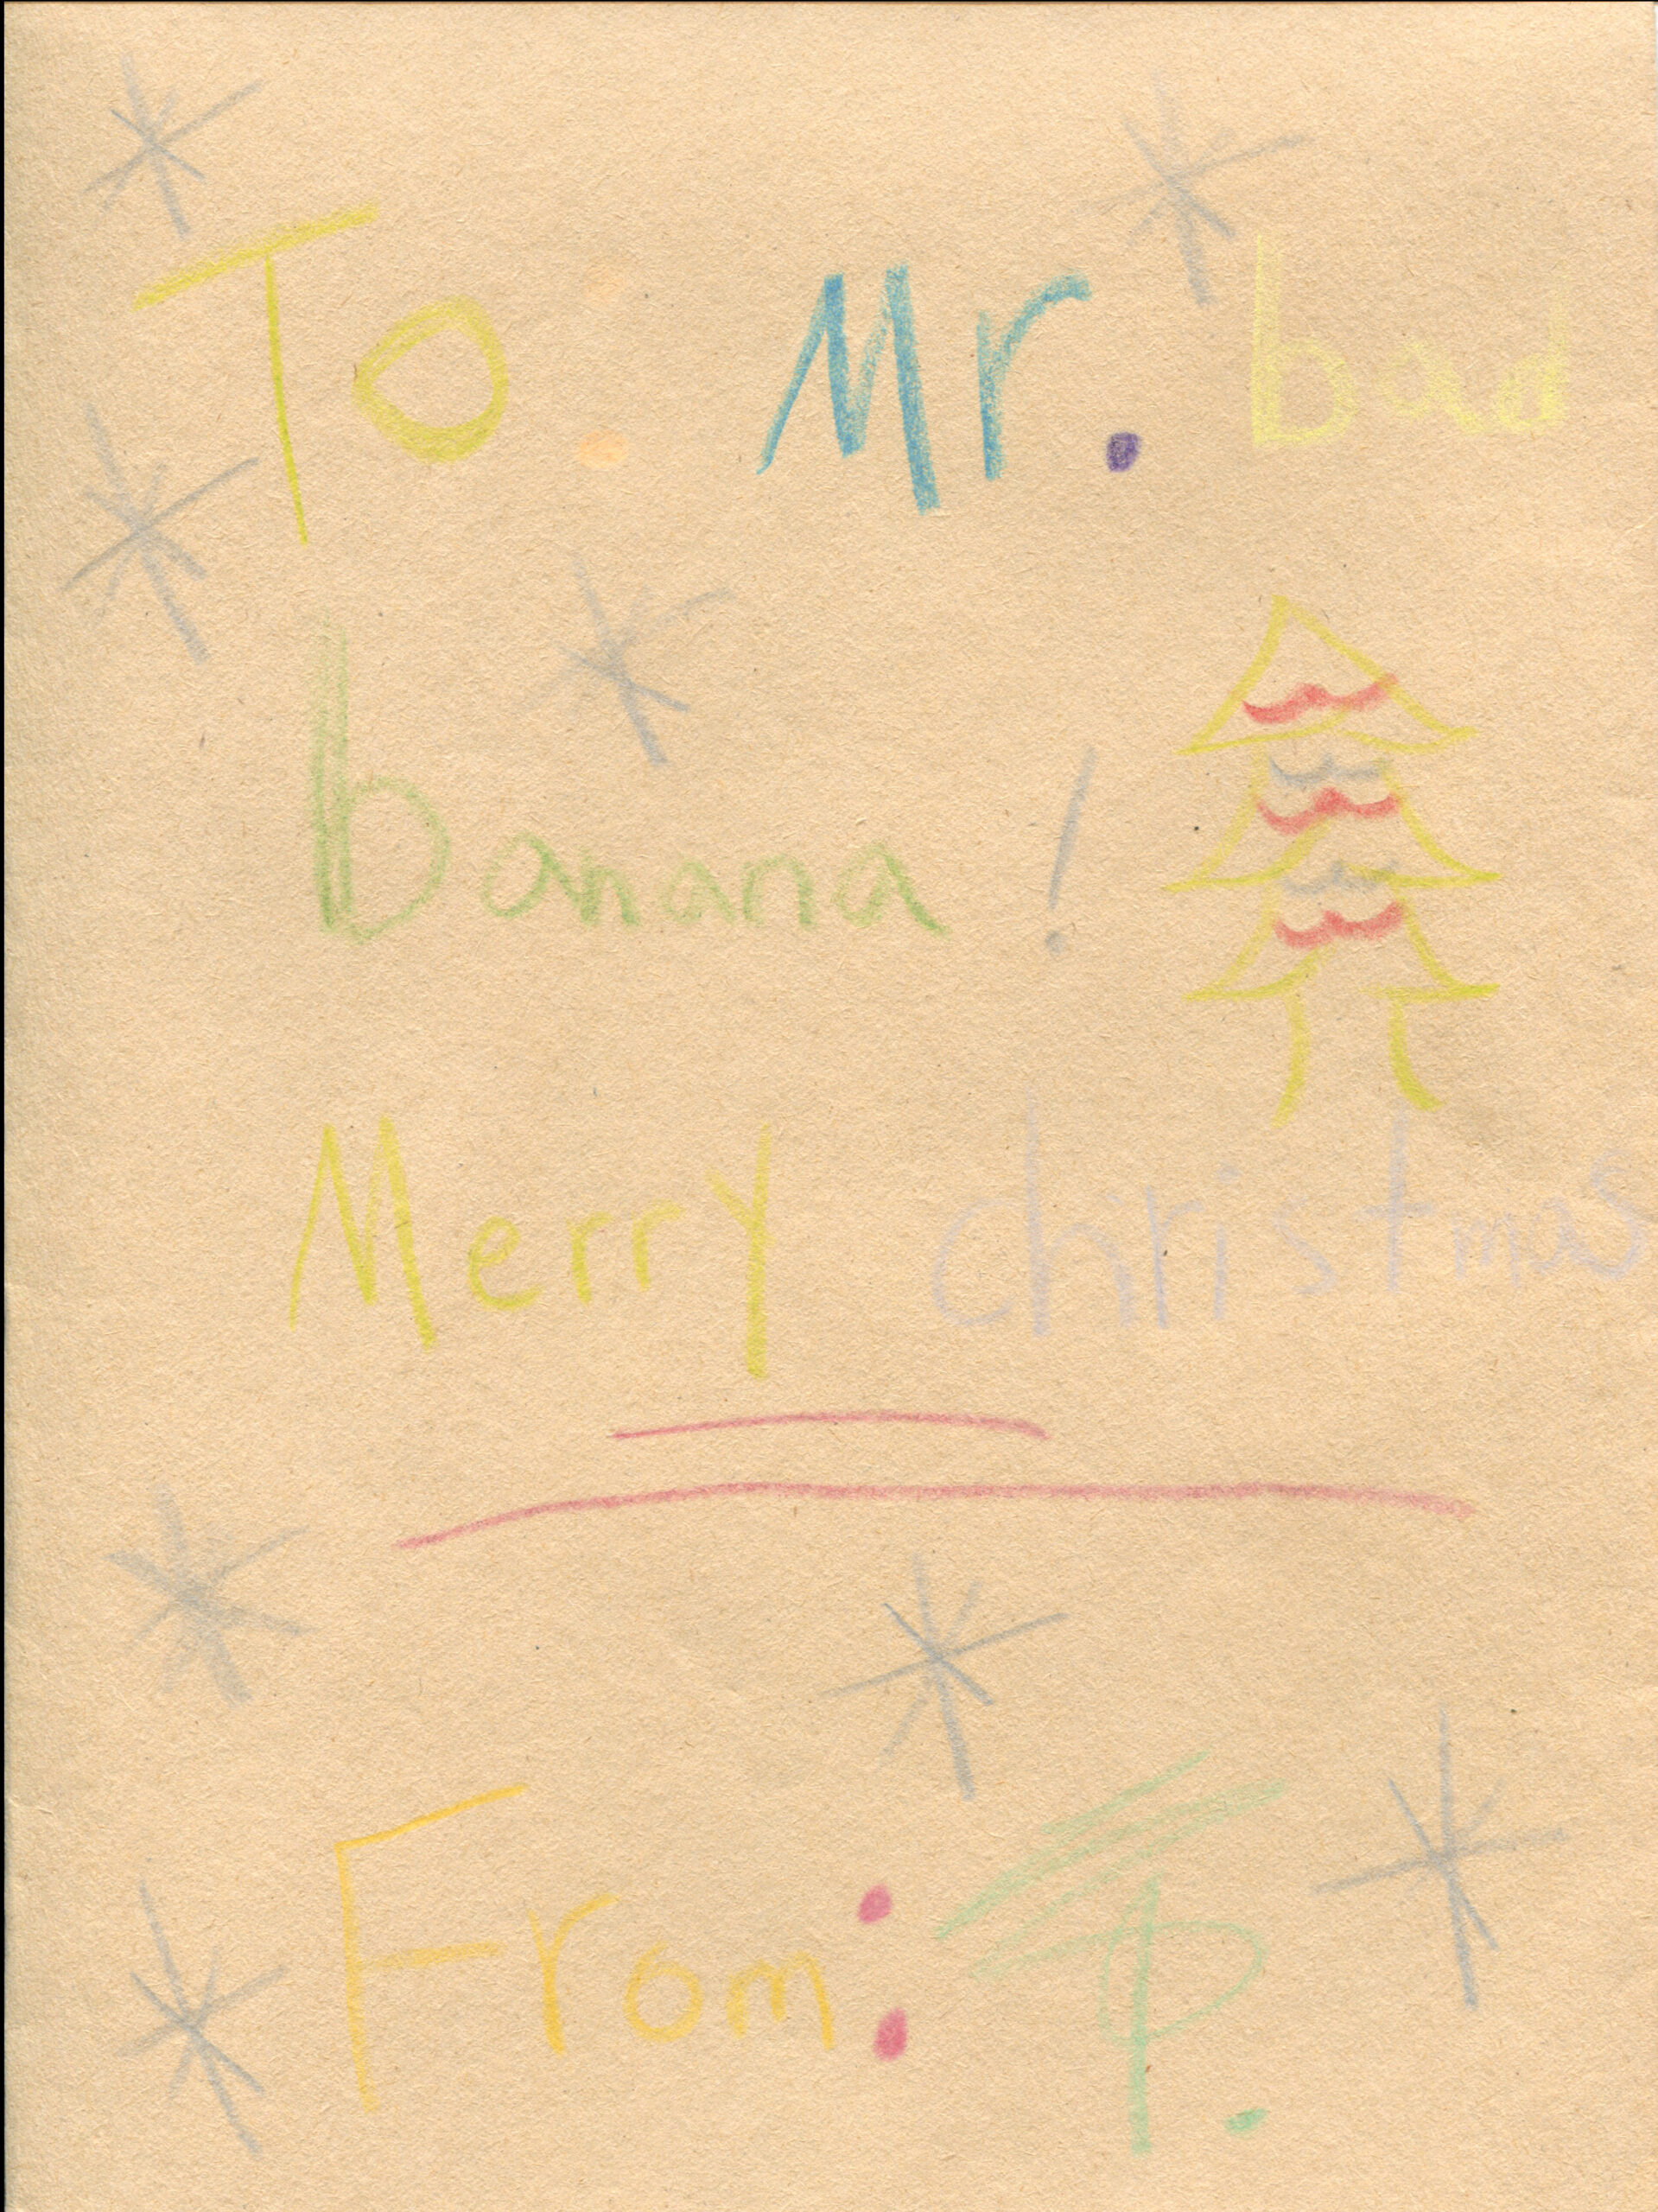 To: Mr. bad
banana!
Merry christmas
From: P.